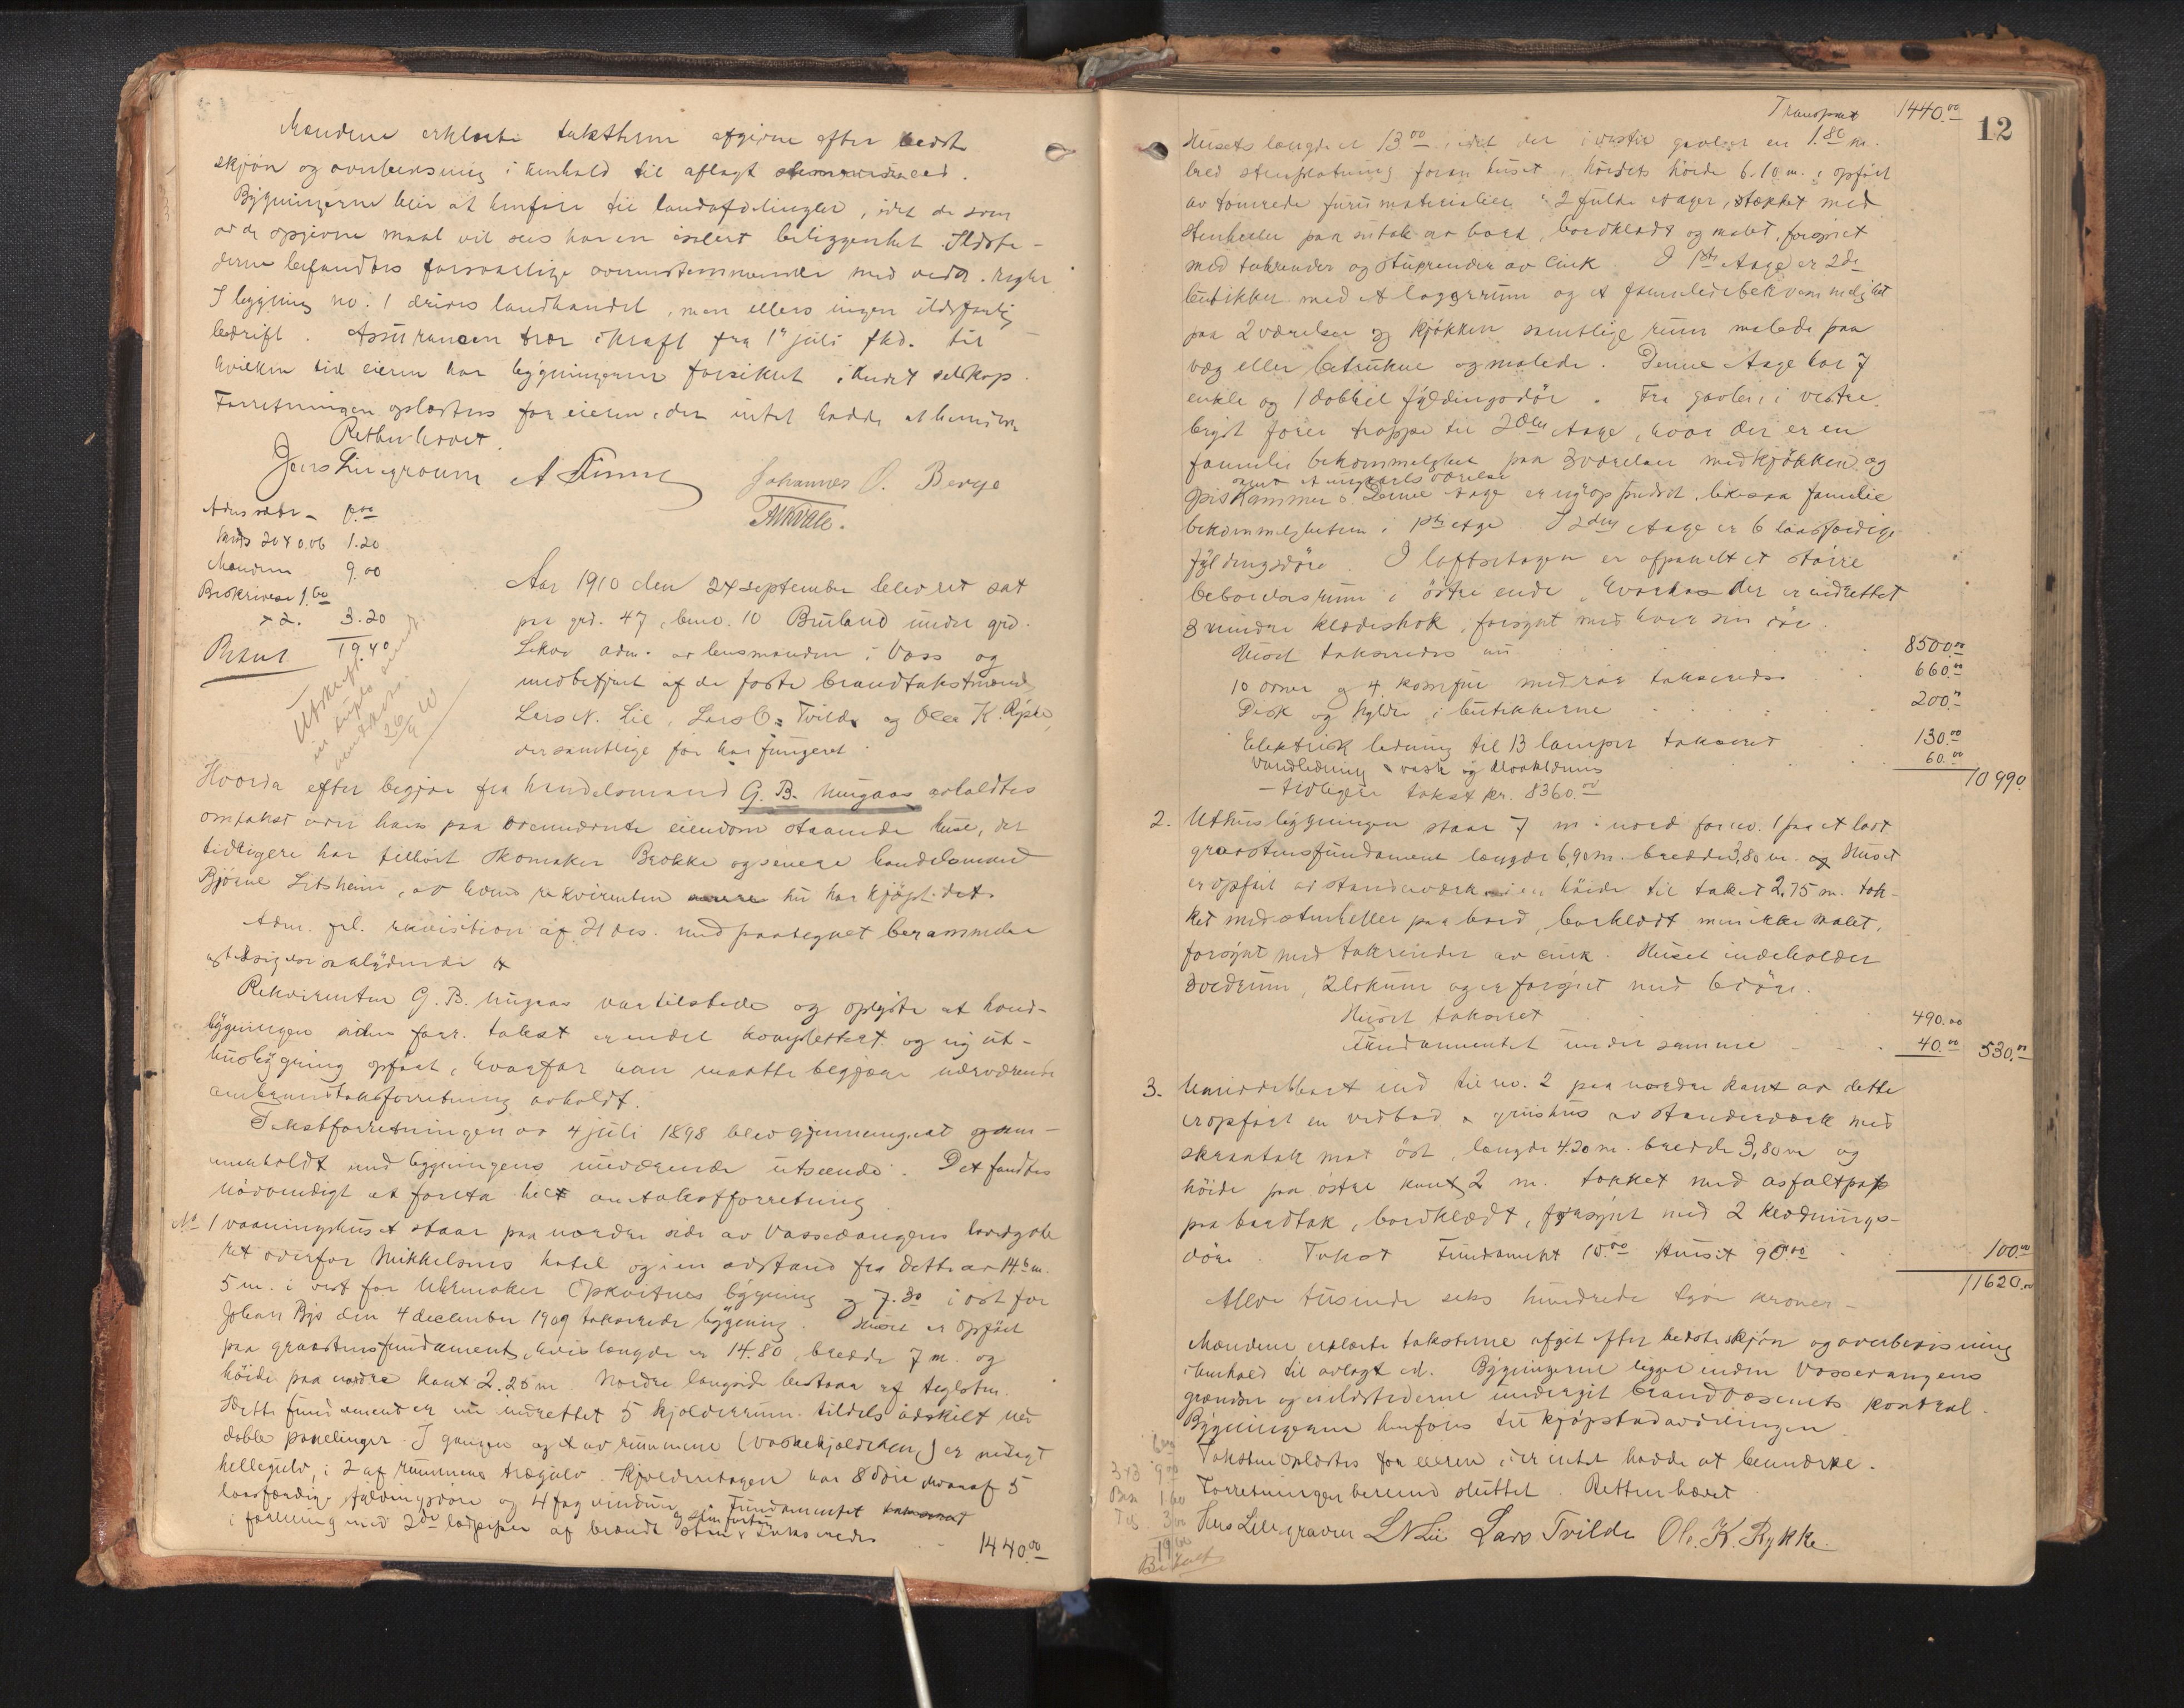 Mændene erklærte taksterne afgivne efter bedste
skjøn og overbevisning i henhold til aflagt ed.
Bygningerne blir at henføre til landafdelingen, idet de som
av de opgivne maal vil sees har en isolert beliggenhet. Ildste-
derne befandtes forsvarlige overensstemmende med vedr. regler.
I bygning no. 1 drives landhandel, men ellers ingen ildsfarlig
bedrift. Assurancen træer i kraft fra 1ste juli fkd. til
hvilken tid eieren har bygningerne forsikret i andet selskap.
Forretningen oplæstes for eieren, der intet hadde at bemærke
Retten hævet.
Jens Lilegraven A Finne Johannes O. Berge
Adms
Skyds 20 x 0.06 1.20
Mændene 9.00
Beskrivelse 1.60
x 2. 3.20
19.40
Betalt
Utskrift
26/9 10
Aar 1910 den 24 september blev ret sat
paa grd. 47, bno. 10 Bruland under grd.
Lekve adm. av lensmanden i Voss og
medbetjent af de faste brandtakstmænd,
Lars N. Lie, Lars O. Tvilde og Ole K. Rykke,
der samtlige før har fungeret.
Hvorda efter begjær fra handelsmand G. B. Ringaas avholdtes
omtakst over hans paa ovennævnte eiendom staaende huse, der
tidligere har tilhørt skomaker Brekke og senere handelsmand
Bjørne Litsheim, av hvem rekvirenten nu har kjøpt det.
Adm. frl. rekvisition af 21 ds. med paategnet berammelse
og tilsigelse saalydende
Rekvirenten G. B. Ringaas var tilstede og oplyste at hoved-
bygningen siden forr. takst er endel komplettert og ny ut-
husbygning opført, hvorfor han maatte begjære nærværende
ombrandtakstforretning avholdt.
Takstforretningen av 4 juli 1898 blev gjennemgaat og sam-
menholdt med bygningens nuværende utseende. Det fandtes
nødvendigt at foreta helt omtakstforretning
No 1 vaaningshuset staar paa nordre side av Vossevangens landgate
ret overfor Mikkelsens hotel og i en avstand fra dette av 14 m.
5 m. i vest for Uhrmaker Opkvitnes bygning og 7.30 i øst for
Johan Bjs den 4 december 1909 takserede bygning. Huset er opført
paa graastensfundament, hvis længde er 14.80, bredde 7 m. og
høide paa nordre kant 2.25 m. Nordre langside bestaar af teglsten.
I dette fundament er nu indrettet 5 kjelderrum tildels adskilt ved
doble panelinger. I gangen og et av rummene (vaskekjelderen) er nedlagt
hellegulv, i 2 af rummene trægulv. Kjelderetagen har 8 døre hvoraf 5
laasfærdige fyldningsdøre og 4 fag vinduer. Fundamentet
i forening med 2de ladpiper af brændt sten takseredes 1440.00
12
Transport 1440.00
Husets længde er 13.00 idet der i vestre gavlen er en 1.80 m.
bred stenplatning foran huset, husets høide 6.10 m., opført
av tømrede furumaterialier i 2 fulde etager, tækket med
stenheller paa sutak av bord, bordklædt og malet, forsynet
med takrender og stuprender av zink. I 1ste etage er 2de
butikker med et lagerrum og et familiebekvemmelighet
paa 2 værelser og kjøkken samtlige rum malede paa
væg eller betrukne og malede. Denne etage har 7
enkle og 1 dobbel fyldingsdør. Fra gavlen i vestre
fører trappe til 2den etage, hvor der er en
familie bekvemmelighet paa 3 værelser med kjøkken og
spiskammer samt et ungkarlsværelse. Denne etage er utstyrt likesaa familie
bekvemmeligheten i 1ste etage. I 2den etage er 6 laasfærdige
fyldingsdøre. I loftsetagen er afpanelt et større
beboelsesrum i østre ende, hvorhos der er indrettet
3 mindre klædeskot, forsynt med hver sin dør.
Huset takseredes nu 8500.00
10 ovner og 4 komfur med rør takseredes 660.00
Disk og hylder i butikkerne 200.00
Elektrisk ledning til 13 lamper takseret 130.00
Vandledning, vask og kloakledning 60.00
10990.
- tidligere takst kr. 8360.00
2. Uthusbygningen staar 7 m. nord for no. 1 paa et løst
graastensfundament længde 6,90 m. bredde 3,80 m. Huset
er opført av standerværk i en høide til taket 2,75 m. tæk-
ket med stenheller paa bord, bordklædt men ikke malet,
forsynt med takrender av zink. Huset indeholder
3 vedrum, 2 lokum og er forsynet med 6 døre.
Huset takseret 490.00
Fundamentet under samme 40.00 530.00
3. Umiddelbart ind til no. 2 paa nordre kant av dette
er opført en vedbod og grishus av standerværk med
skraatak mot øst, længde 4.20 m. bredde 3,80 m og
høide paa østre kant 2 m. tækket med asfaltpap
paa bordtak, bordklædt, forsynt med 2 klædnings-
døre. Takst Fundamentet 10.00 Huset 90.00 100.00
11620.00
Elleve tusende seks hundrede tyve kroner -
Mændene erklærte taksterne afgit efter bedste skjøn og overbevisning
i henhold til avlagt ed. Bygningerne ligger inden Vossevangens
grænser og er ildstederne undergit brandvæsenets kontrol.
Bygningerne henføres til kjøpstadavdelingen.
Taksten oplæstes for eieren, der intet hadde at bemærke.
Forretningen herved sluttet. Retten hævet
3x3 9.00
Besk 1.60
Betalt
Jens Lilegraven L N Lie Lars Tvilde Ole K. Rykke